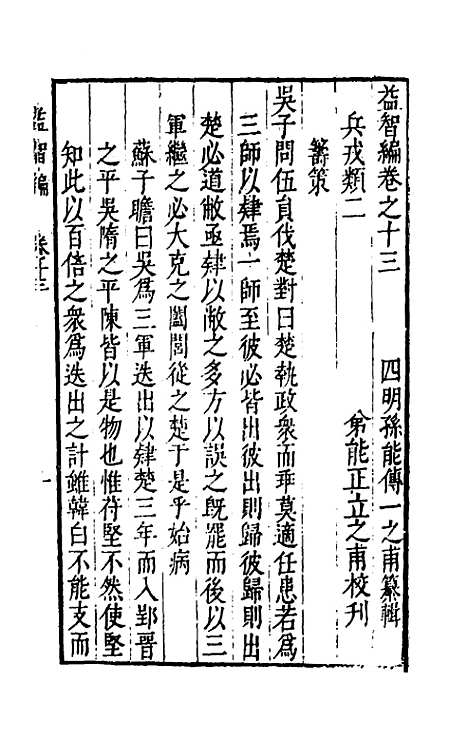 益智編卷之十三　四明孫能傳一之甫纂輯
兵戎類二　弟能正立之甫校刊
籌策
吳子問伍員伐楚對曰楚執政衆而乖莫適任患若爲
三師以肄焉一師至彼必皆出彼出則歸彼歸則出
楚必道敝亟肄以敝之多方以誤之旣罷而後以三
軍繼之必大克之闔閭從之楚于是乎始病
蘇子瞻曰吳爲三軍迭出以肄楚三年而入郢晉
之平吳隋之平陳皆以是物也惟苻堅不然使堅
知此以百倍之衆爲迭出之計雖韓白不能支而
益智編　卷十三　一